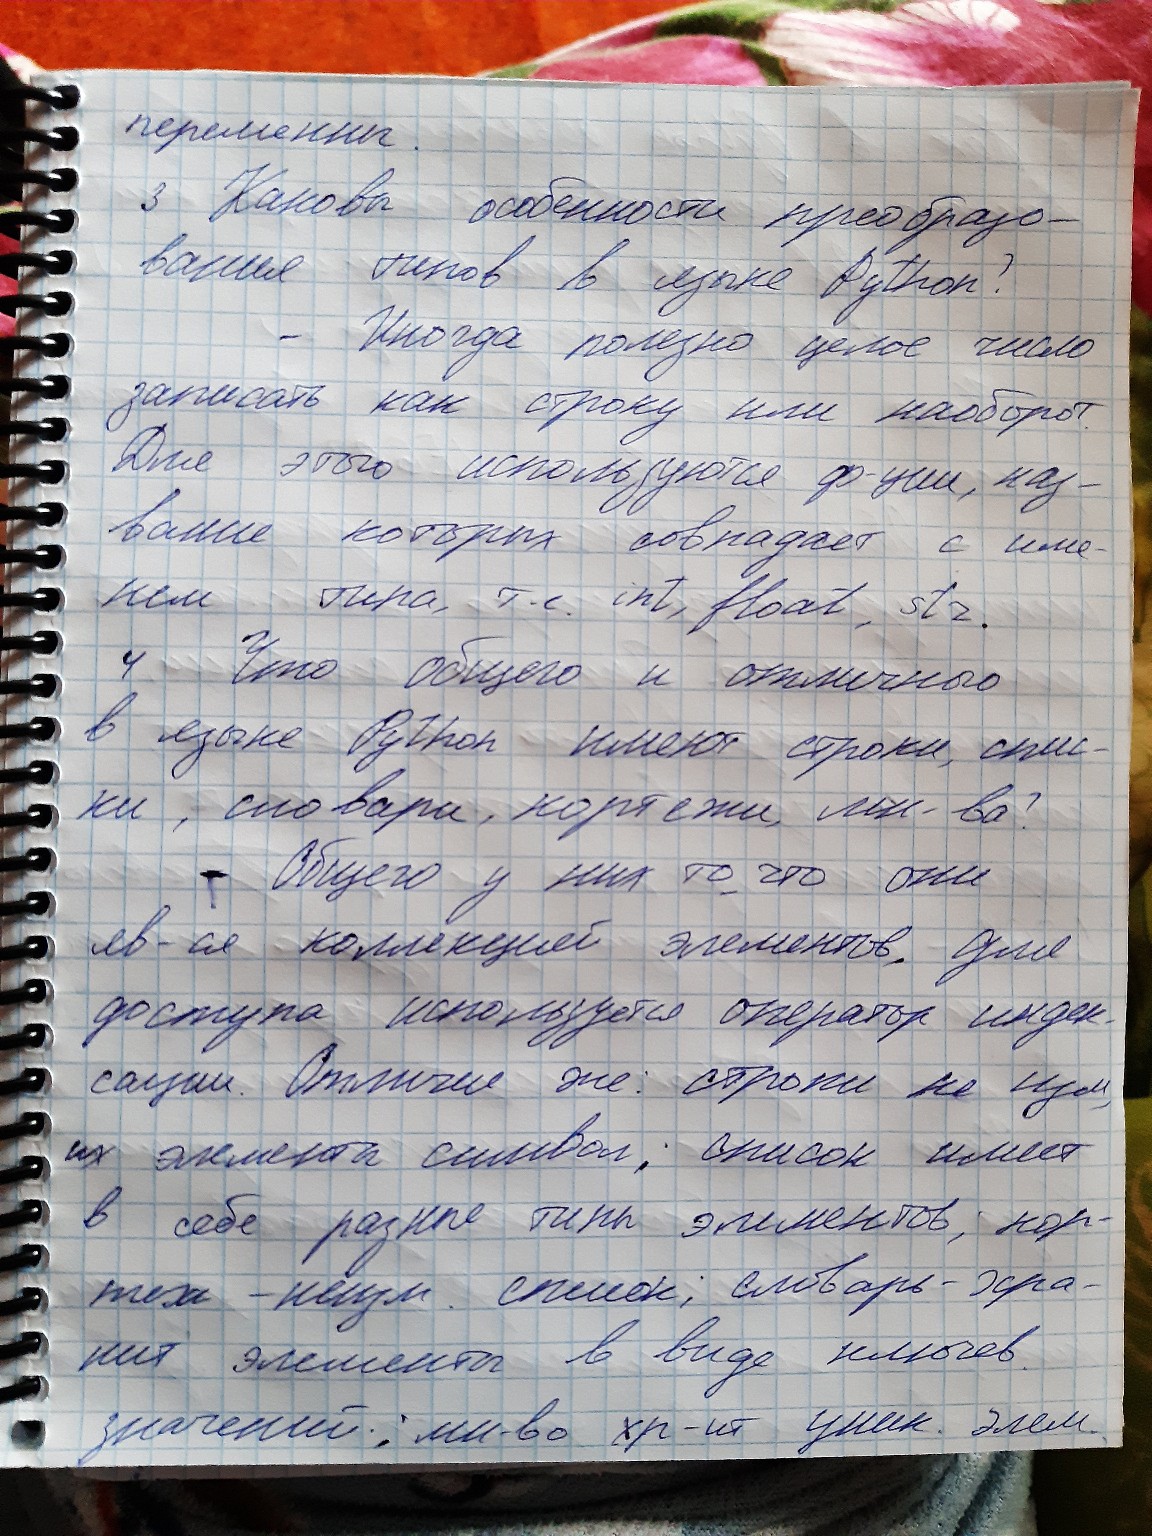 переменны.
3 Каковы особенности преобразо-
вания типов в языке Python?
- Иногда полезно целое число
записать как строку или наоборот.
Для этого используются ф-ции, наз-
вание которых совпадает с име-
нем типа, т.е. int, float, str.
4 Что общего и отличного
в языке Python имеют строки, спис-
ки, словари, кортежи, мн-ва?
- Общего у них то, что они
яв-ся коллекцией элементов, для
доступа используется оператор индек-
сации. Отличие же: строки не изм,
их элементы символ; список имеет
в себе разные типы элементов; кор-
теж - неизм. список; словарь - хра-
нит элементы в виде ключев.
значений.; мн-во хр-ит уник. элем.